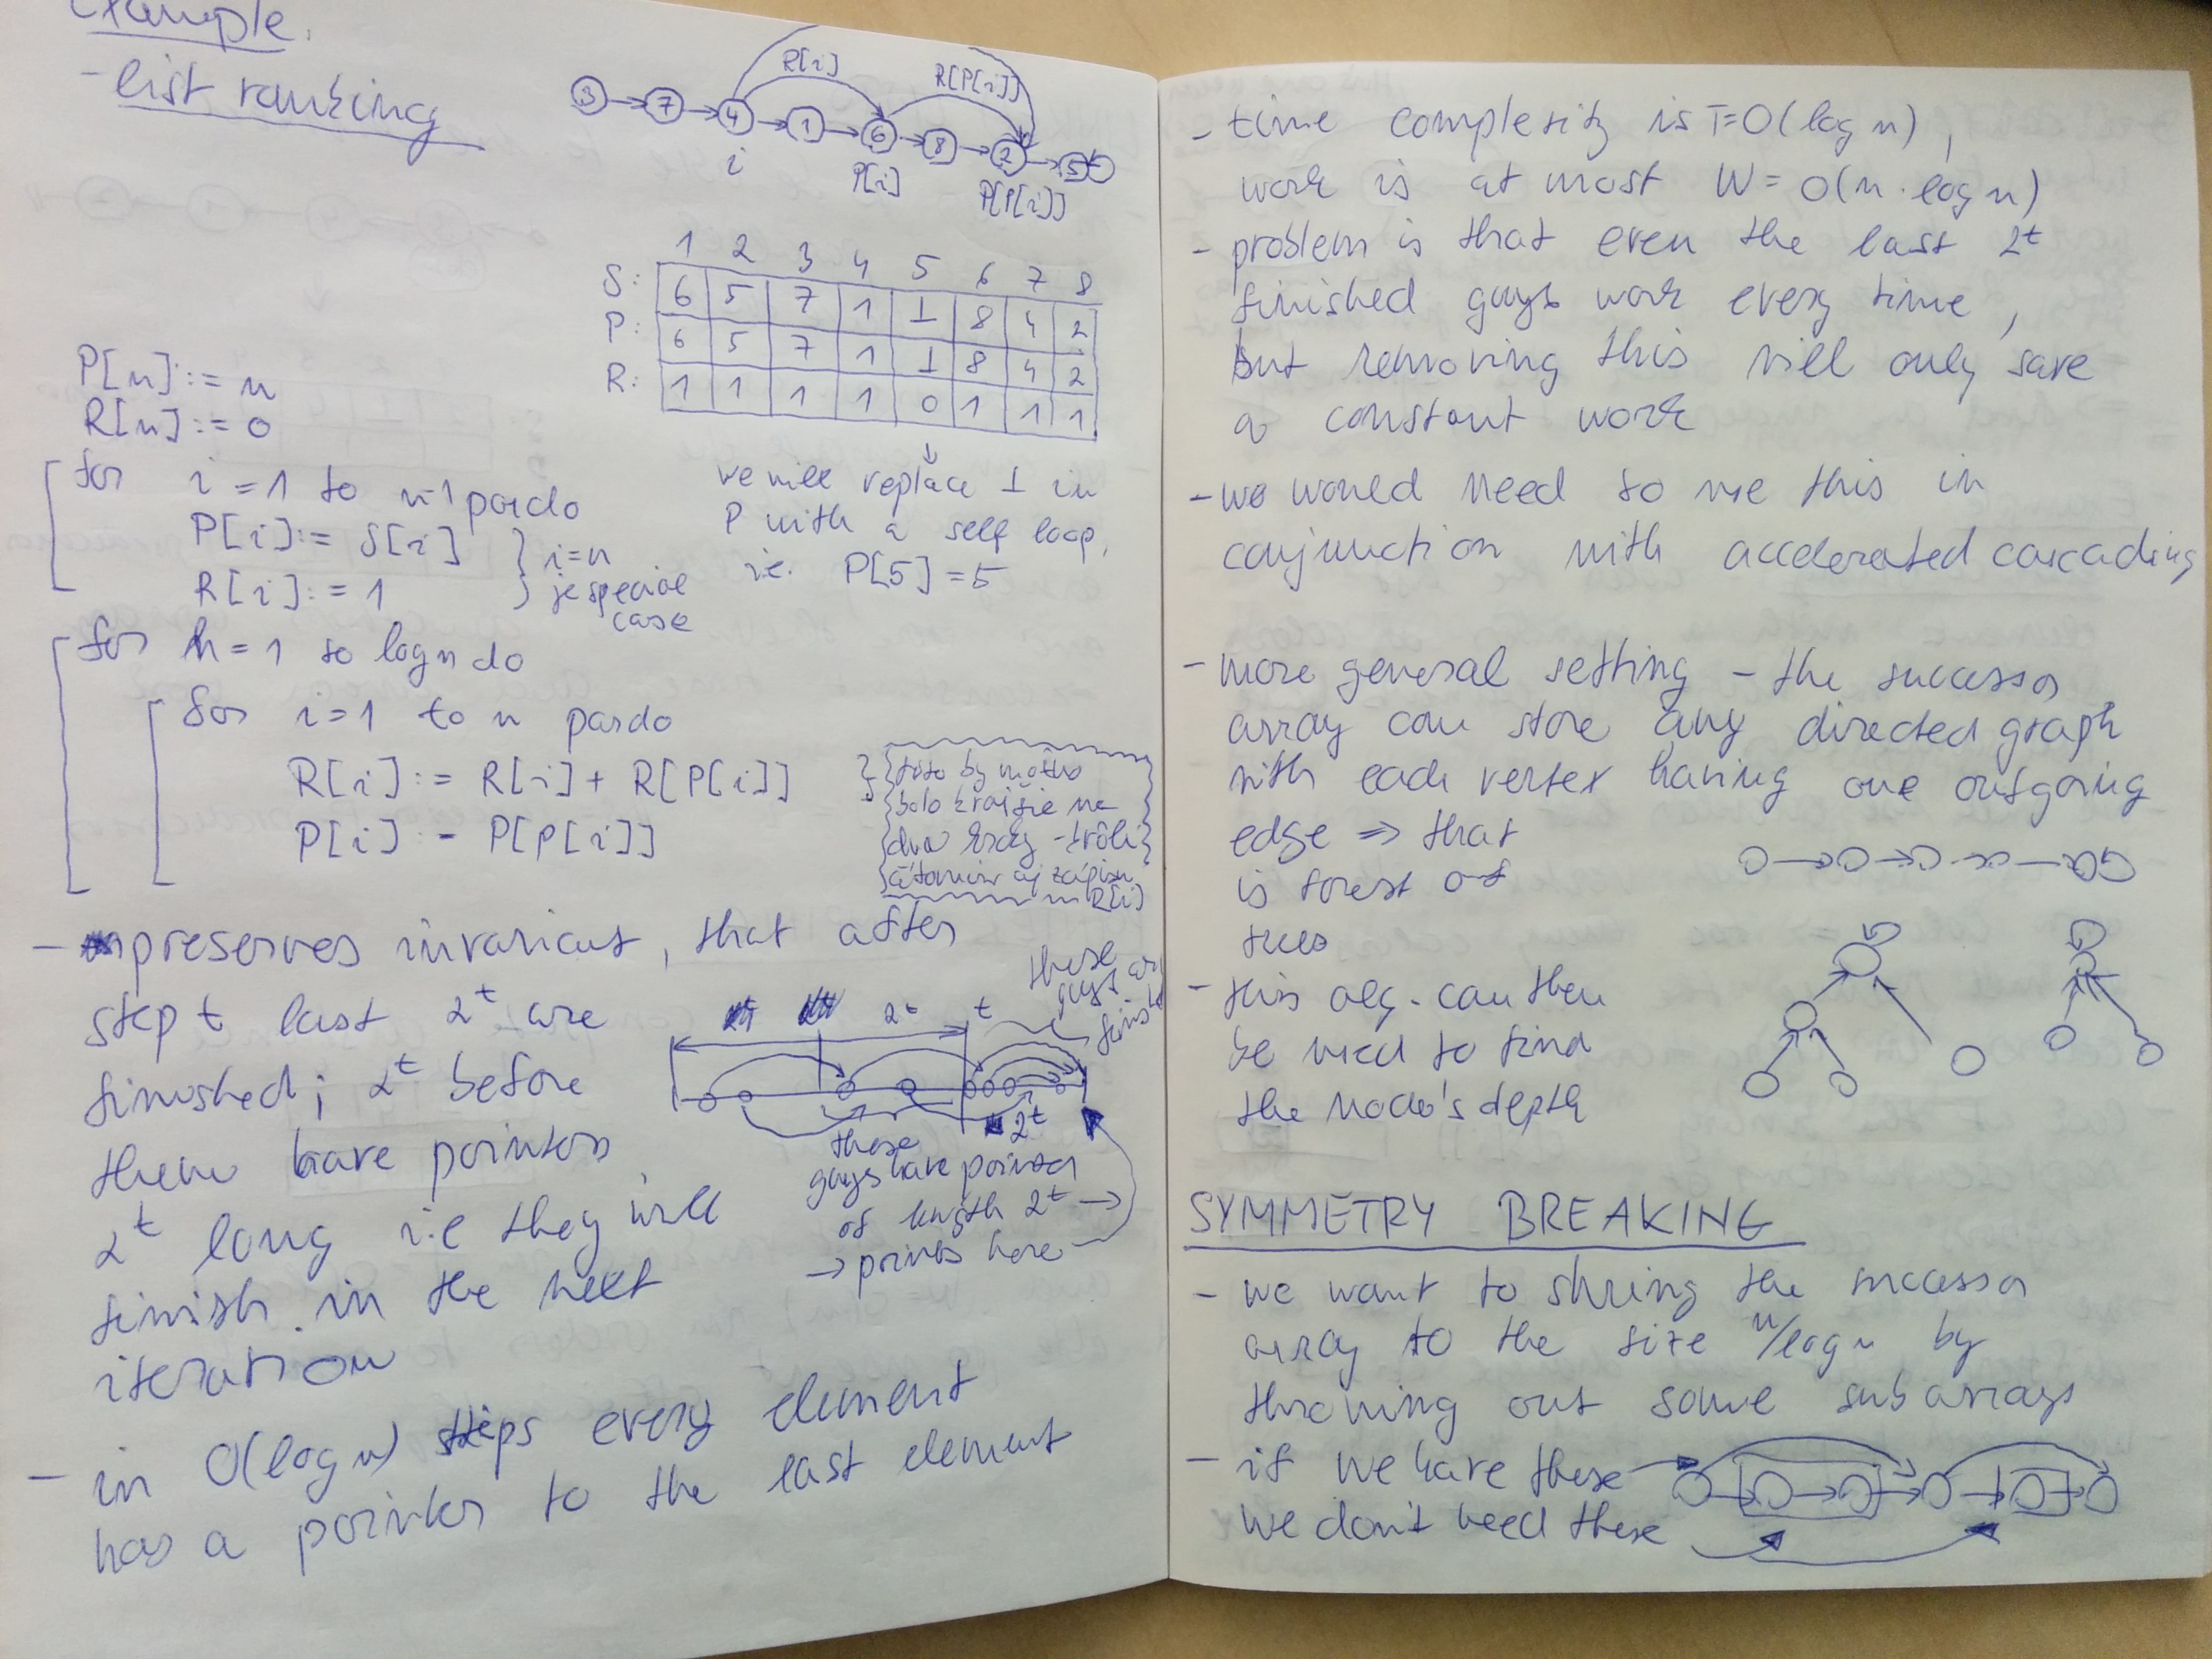 Example.
- list ranking
3 7 4 1 6 8 2 5
R[i] R[P[i]]
i P[i] P[P[i]]
1 2 3 4 5 6 7 8
S: 6 5 7 1 ⊥ 8 4 2
P: 6 5 7 1 ⊥ 8 4 2
R: 1 1 1 1 0 1 1 1
we will replace ⊥ in
P with a self loop,
i.e. P[5] = 5
P[n] := n
R[n] := 0
for i = 1 to n-1 pardo
P[i] := S[i]
R[i] := 1
} i=n
je special
case
for h = 1 to log n do
for i = 1 to n pardo
R[i] := R[i] + R[P[i]]
P[i] := P[P[i]]
toto by možno
bolo krajšie na
dva kroky - kvôli
čítaniu aj zápisu
R[i]
- preserves invariant, that after
step t last 2^t are
finished; 2^t before
them have pointers
2^t long i.e they will
finish in the next
iteration
these
guys are
2^t t
2^t
these
guys have pointer
of length 2^t →
→ points here
- in O(log n) steps every element
has a pointer to the last element
- time complexity is T=O(log n),
work is at most W = O(n · log n)
- problem is that even the last 2^t
finished guys work every time,
but removing this will only save
a constant work
- we would need to use this in
conjunction with accelerated cascading
- more general setting - the successor
array can store any directed graph
with each vertex having one outgoing
edge => that
is forest of
trees
- this alg. can then
be used to find
the node's depth
SYMMETRY BREAKING
- we want to shring the successor
array to the size n/log n by
throwing out some subarrays
- if we have these
we don't need these